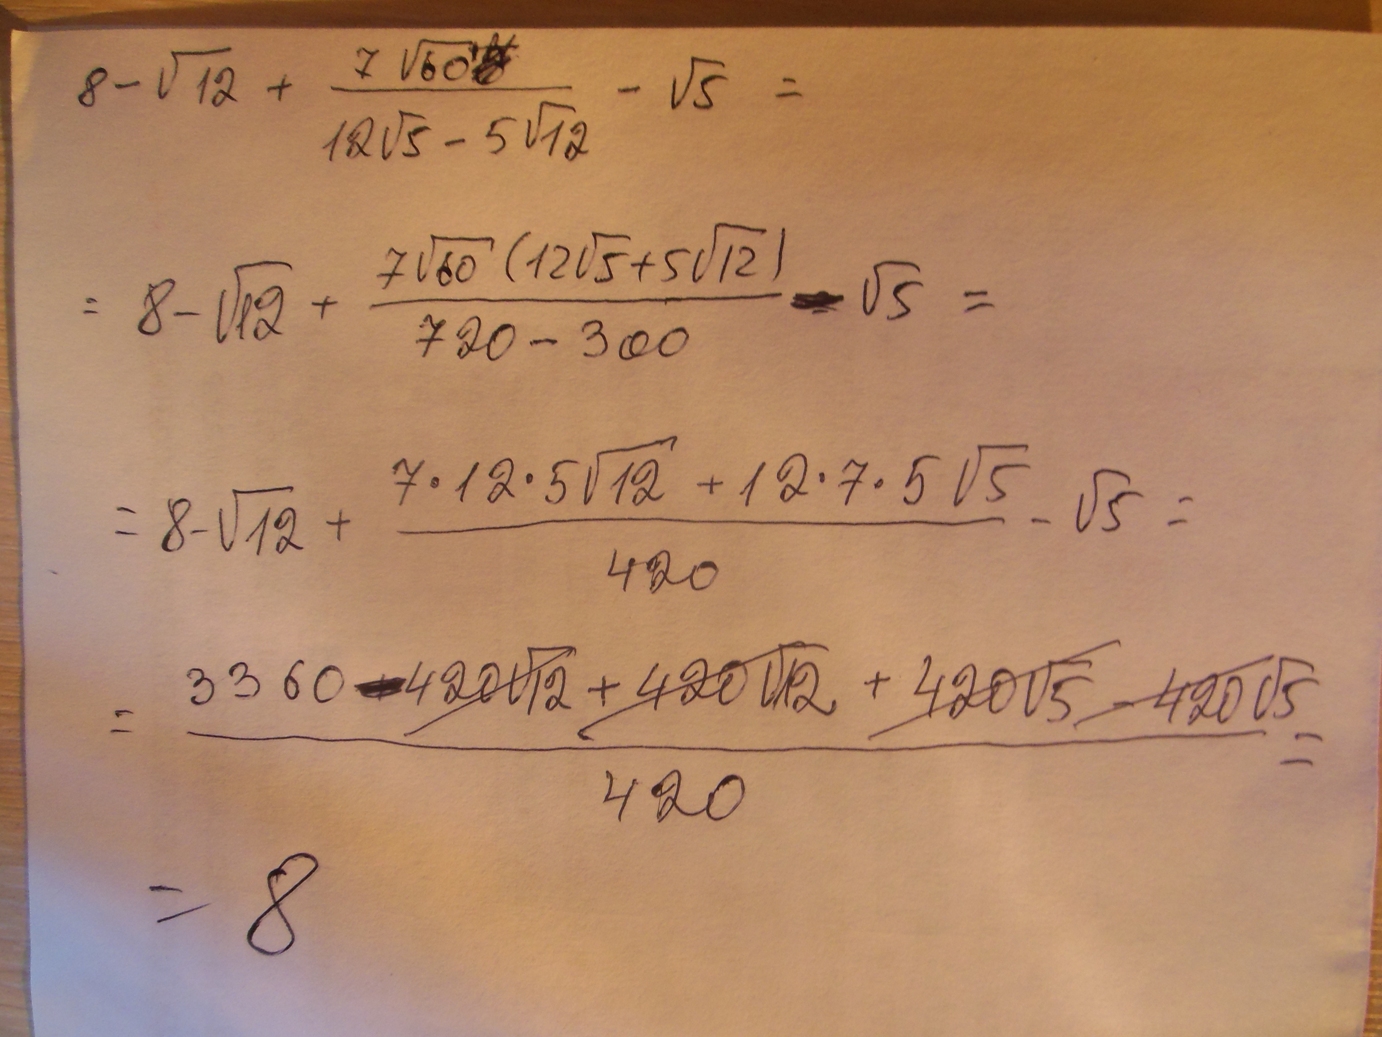 8 - √12 + (7√60)/(12√5 - 5√12) - √5 =
= 8 - √12 + (7√60 (12√5 + 5√12))/(720 - 300) - √5 =
= 8 - √12 + (7·12·5√12 + 12·7·5√5)/420 - √5 =
= (3360 - 420√12 + 420√12 + 420√5 - 420√5)/420 =
= 8